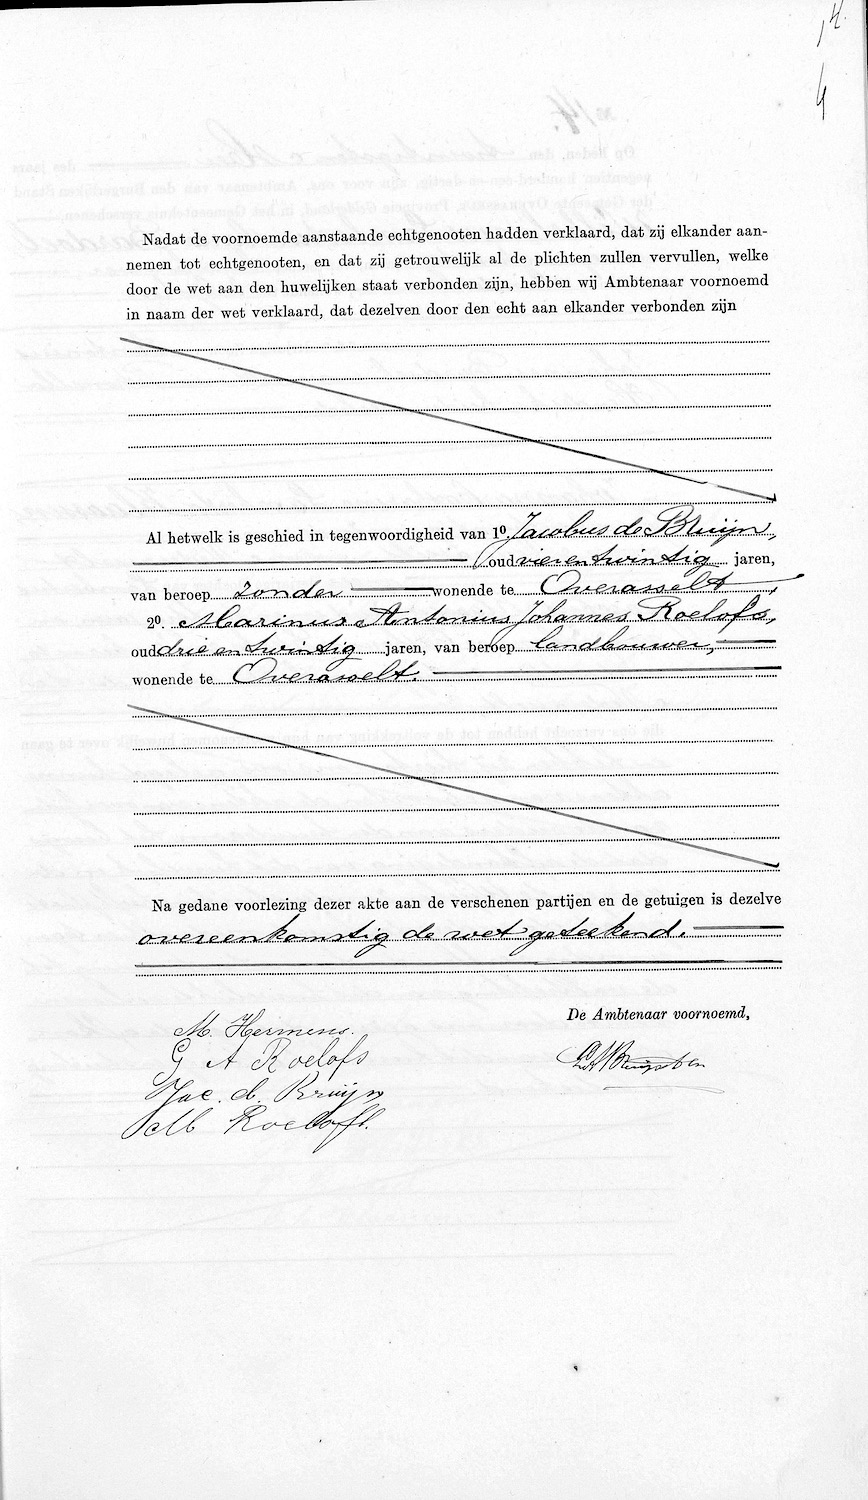 14.
4
Nadat de voornoemde aanstaande echtgenooten hadden verklaard, dat zij elkander aan-
nemen tot echtgenooten, en dat zij getrouwelijk al de plichten zullen vervullen, welke
door de wet aan den huwelijken staat verbonden zijn, hebben wij Ambtenaar voornoemd
in naam der wet verklaard, dat dezelven door den echt aan elkander verbonden zijn
Al hetwelk is geschied in tegenwoordigheid van 1º. Jacobus de Bruijn,
oud vierentwintig jaren,
van beroep zonder wonende te Overasselt,
2º. Marinus Antonius Johannes Roelofs,
oud drieentwintig jaren, van beroep landbouwer,
wonende te Overasselt.
Na gedane voorlezing dezer akte aan de verschenen partijen en de getuigen is dezelve
overeenkomstig de wet geteekend.
De Ambtenaar voornoemd,
M. Hermens.
G A Roelofs
Jac. d. Bruijn
M Roelofs.